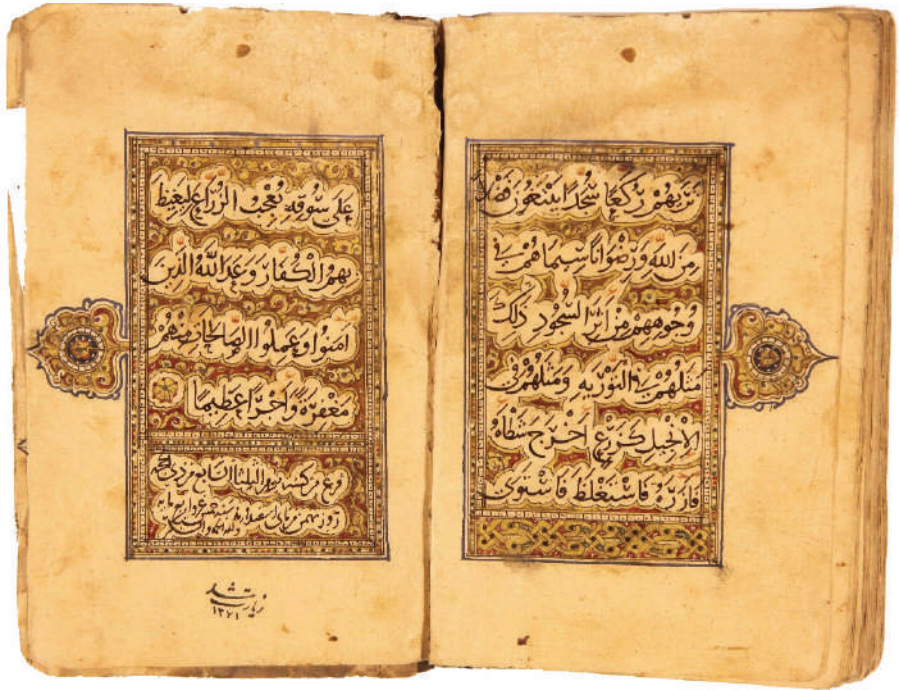 تَرٰيهُمْ رُكَّعًا سُجَّدًا يَبْتَغُونَ فَضْلًا
مِنَ اللّٰهِ وَرِضْوَانًا سِيمَاهُمْ فِي
وُجُوهِهِمْ مِنْ اَثَرِ السُّجُودِ ذٰلِكَ
مَثَلُهُمْ فِي التَّوْرٰيةِ وَمَثَلُهُمْ فِي
الْاِنْجِيلِ كَزَرْعٍ اَخْرَجَ شَطْاَهُ
فَاٰزَرَهُ فَاسْتَغْلَظَ فَاسْتَوٰى
عَلٰى سُوقِهِ يُعْجِبُ الزُّرَّاعَ لِيَغِيظَ
بِهِمُ الْكُفَّارَ وَعَدَ اللّٰهُ الَّذِينَ
اٰمَنُوا وَعَمِلُوا الصَّالِحَاتِ مِنْهُمْ
مَغْفِرَةً وَاَجْرًا عَظِيمًا
فرغ من
زيارت شد
۱۳۲۱